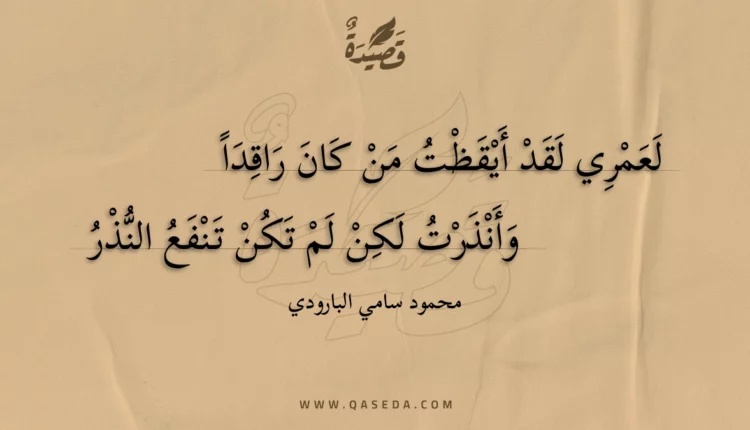 قَصِيدَةٌ
لَعَمْرِي لَقَدْ أَيْقَظْتُ مَنْ كَانَ رَاقِدَاً
وَأَنْذَرْتُ لَكِنْ لَمْ تَكُنْ تَنْفَعُ النُّذْرُ
محمود سامي البارودي
WWW.QASEDA.COM